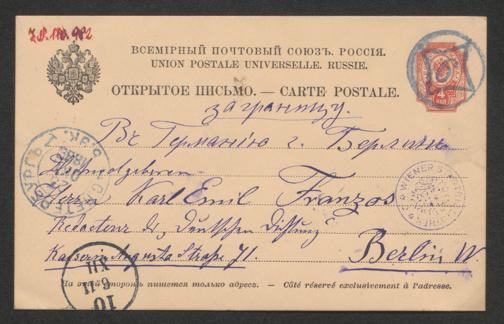 Z.P. 180.982
ВСЕМІРНЫЙ ПОЧТОВЫЙ СОЮЗЪ. РОССІЯ.
UNION POSTALE UNIVERSELLE. RUSSIE.
ОТКРЫТОЕ ПИСЬМО. — CARTE POSTALE.
за границу.
4
Въ Германію г. Берлинъ
Hochwolgeboren
Herrn Karl Emil Franzos
Redacteur der „Deutschen Dichtung"
Kaiserin Augusta Straße 71.
Berlin W.
На этой сторонѣ пишется только адресъ. — Côté réservé exclusivement à l'adresse.
WIENER
10
XII